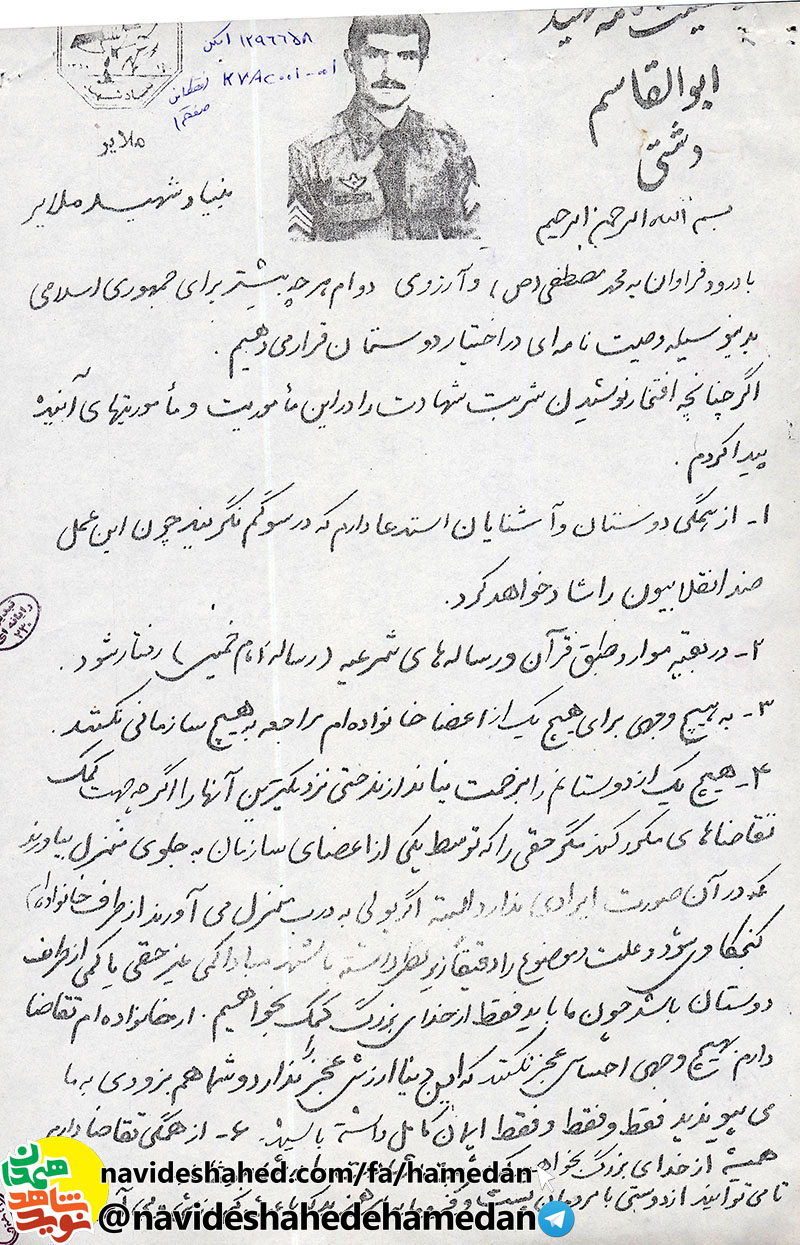 وصیت نامه شهید
ابوالقاسم
دشتی
۱۲۹۶۶۵۸
صفحه ۱
ملایر
بنیاد شهید ملایر
بسم الله الرحمن الرحیم
با درود فراوان به محمد مصطفی (ص) و آرزوی دوام هر چه بیشتر برای جمهوری اسلامی
بدینوسیله وصیت نامه ای در اختیار دوستان قرار می دهیم.
اگر چنانچه افتخار نوشیدن شربت شهادت را در این مأموریت و مأموریتهای آینده
پیدا کردم.
۱- از همگی دوستان و آشنایان استدعا دارم که در سوگم نگریند چون این عمل
ضد انقلابیون را شاد خواهد کرد.
۲- در بقیه موارد طبق قرآن و رساله های شرعیه (رساله امام خمینی) رفتار شود.
۳- به هیچ وجهی برای هیچ یک از اعضا خانواده ام مراجعه به هیچ سازمانی نکنند.
۴- هیچ یک از دوستانم را بزحمت نیاندازند حتی نزدیکترین آنها را اگر چه جهت کمک
تقاضاهای مکرر کنند مگر حقی را که توسط یکی از اعضای سازمان به جلوی منزل بیاورند
که در آن صورت ایرادی ندارد البته اگر پولی به درب منزل می آورند از طرف خانواده ام
کنجکاوی شود و علت و موضوع را دقیقاً زیر نظر داشته باشند مبادا کمی غیر حقی یا کمکی از طرف
دوستان باشد چون ما باید فقط از خدای بزرگ کمک بخواهیم. از خانواده ام تقاضا
دارم بهیچ وجهی احساس عجز نکنند که این دنیا ارزش عجز را ندارد و شما هم بزودی به ما
می پیوندید فقط و فقط و فقط ایمان کامل داشته باشید. ۶- از همگی تقاضا دارم
همیشه از خدای بزرگ بخواهید
تا می توانید از دوستی با مردمان پست
navideshahed.com/fa/hamedan
@navideshahedehamedan
نوید شاهد همدان